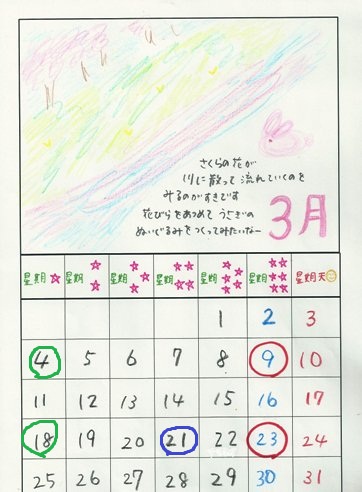 さくらの花が
川に散って流れていくのを
みるのがすきです
花びらをあつめてうさぎの
ぬいぐるみをつくってみたいなー
3月
星期 星期 星期 星期 星期 星期 星期天
1 2 3
4 5 6 7 8 9 10
11 12 13 14 15 16 17
18 19 20 21 22 23 24
25 26 27 28 29 30 31